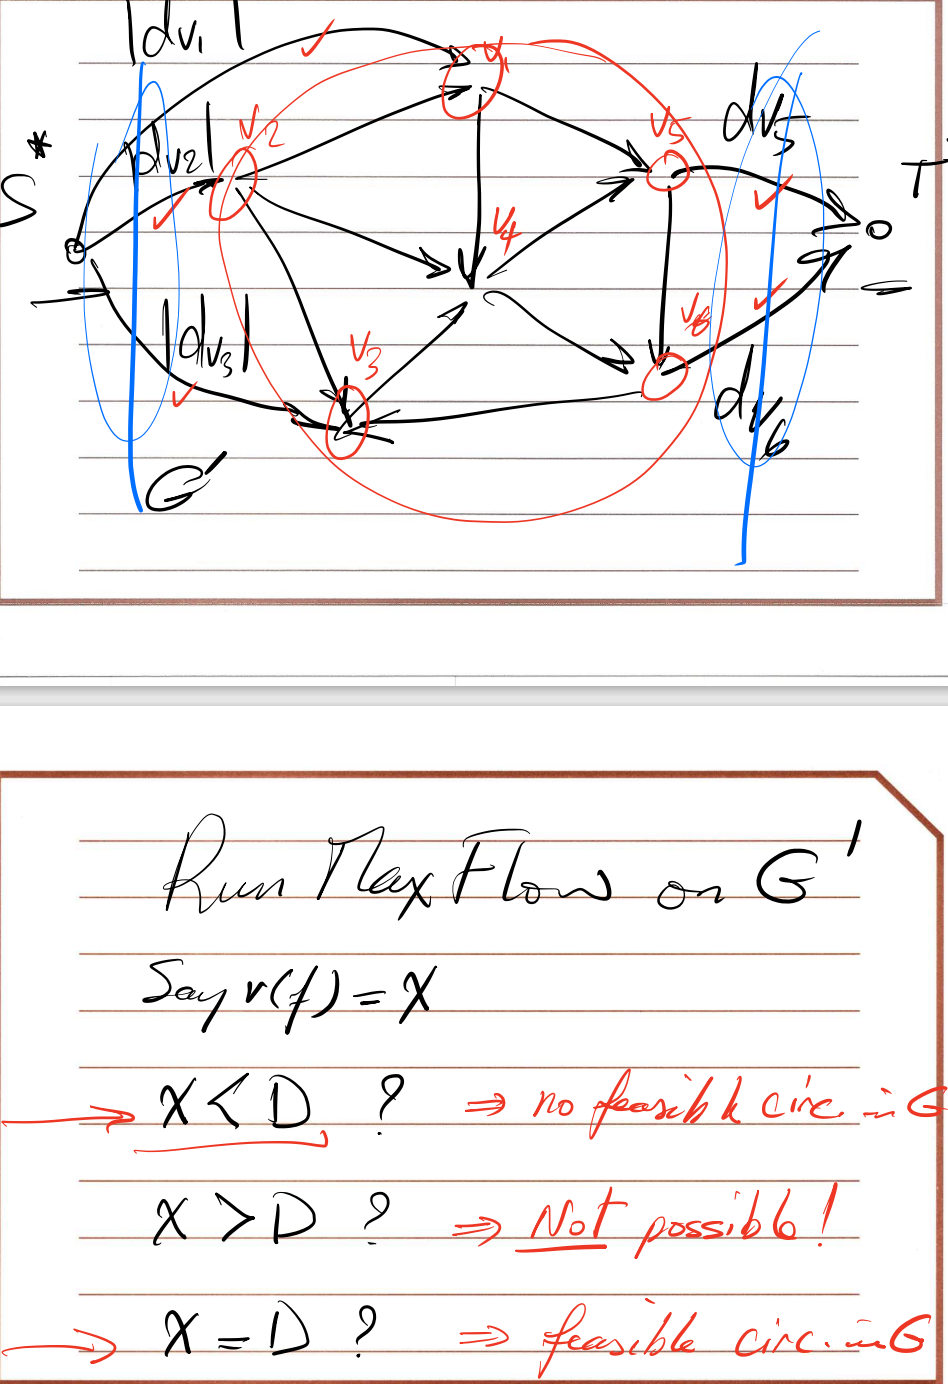 |dv₁|
v₁
v₂
v₅
dv₅
S*
|dv₂|
T
v₄
v₃
v₆
|dv₃|
dv₆
G'
Run Max Flow on G'
Say v(f) = X
X < D ? ⇒ no feasible circ. in G
X > D ? ⇒ Not possible!
X = D ? ⇒ feasible circ. in G